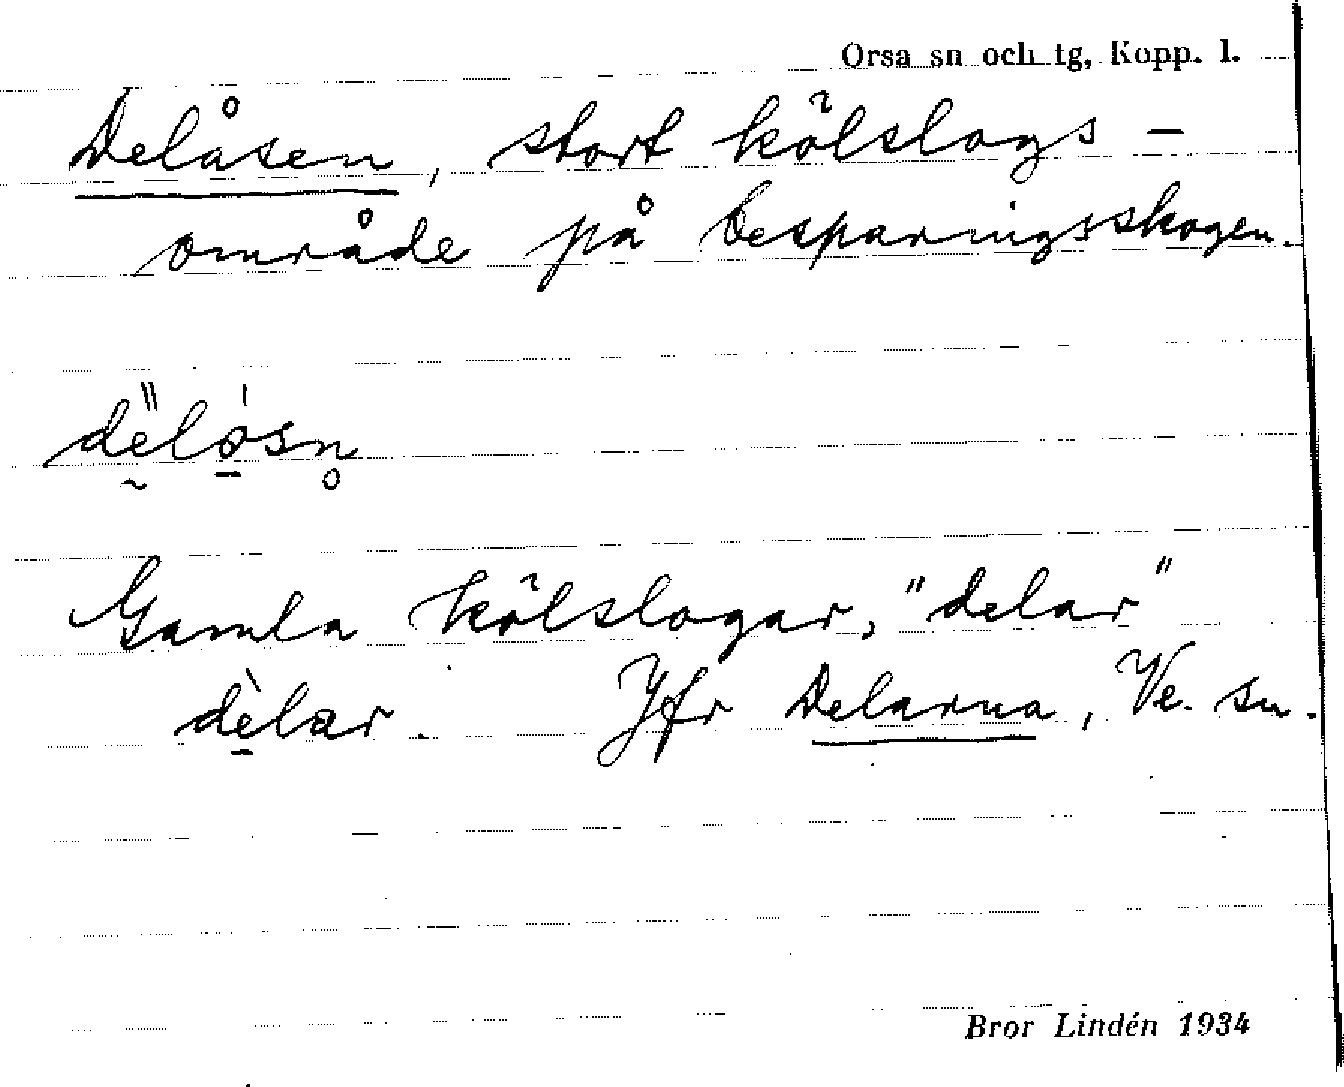 Orsa sn och tg, Kopp. l.
Delåsen, stort kölslogs-
område på besparingsskogen.
dèlósn̥
Gamla kölslogar, "delar"
dèlar. Jfr Delarna, Ve. sn.
Bror Lindén 1934